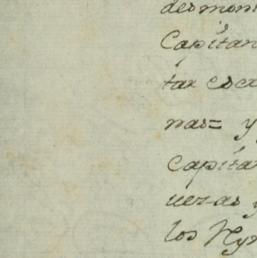 desmon
Capitan
tar esca
nas= y
Capitan
uezas y
los Ny